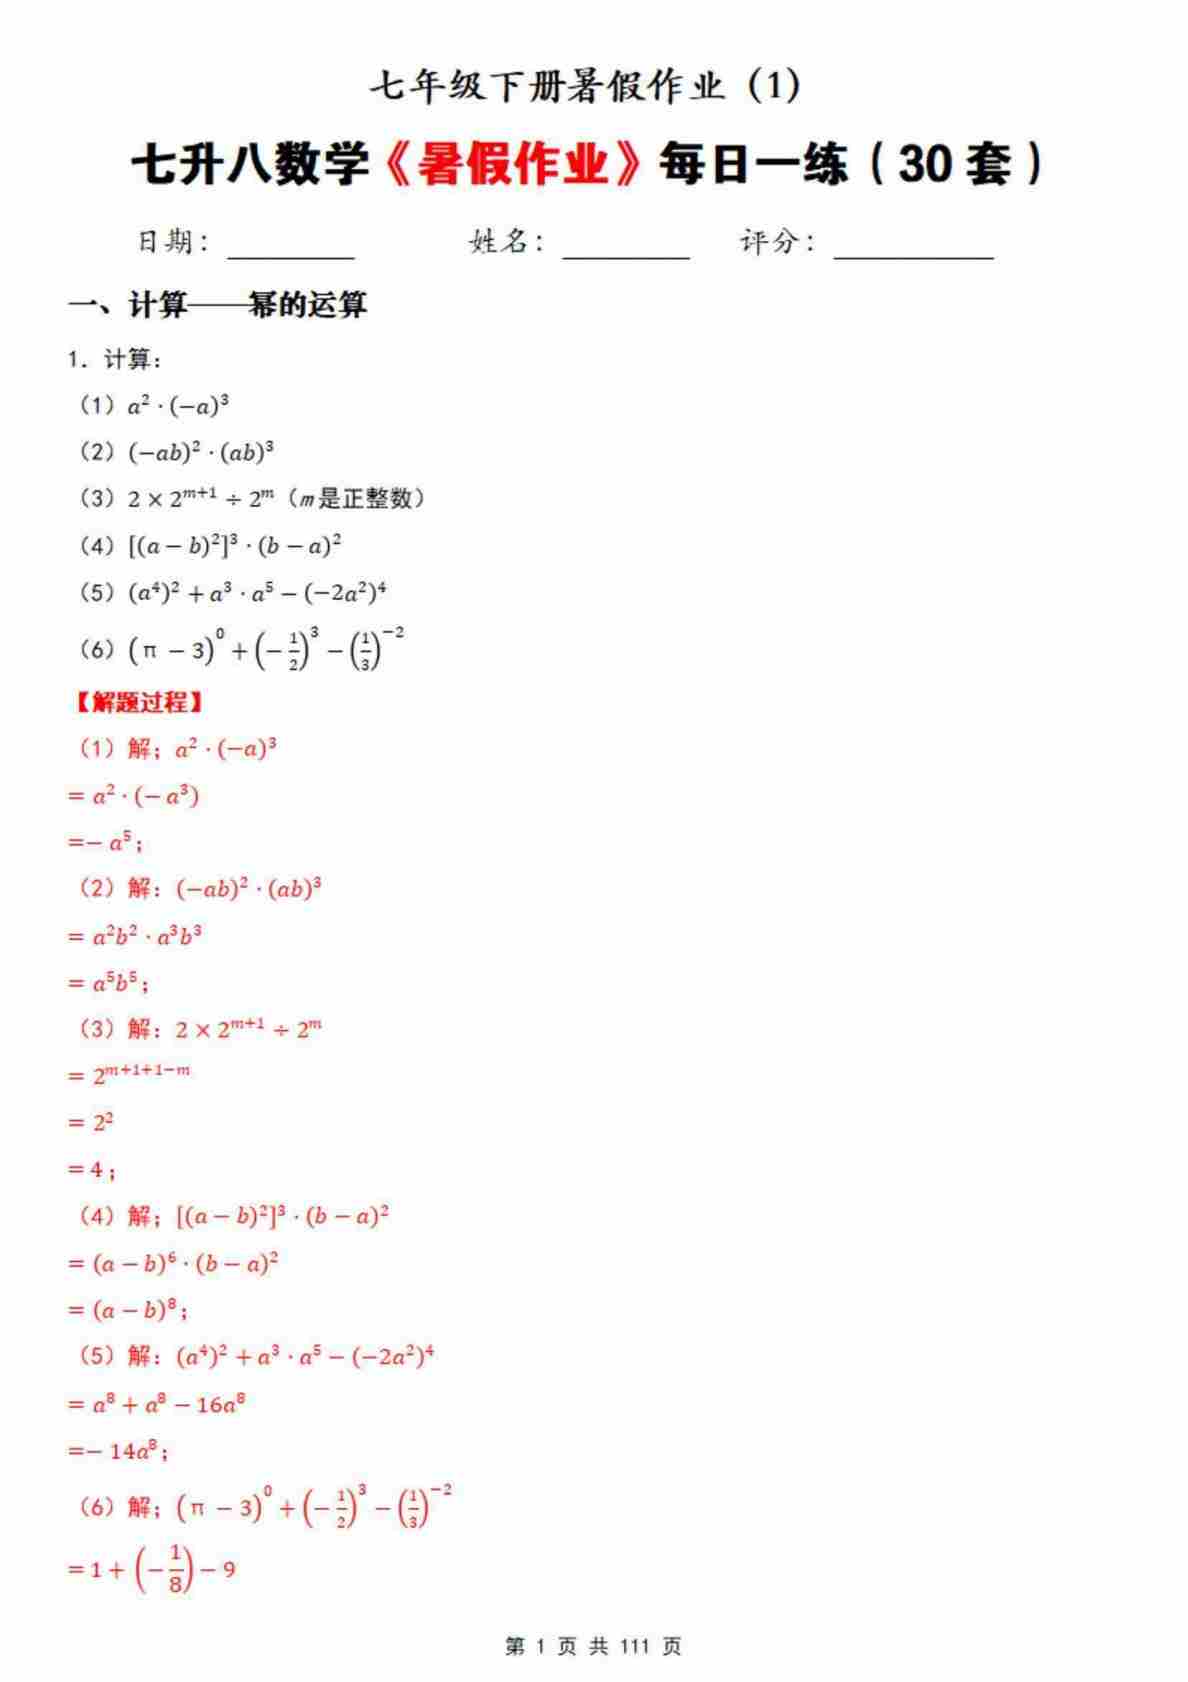 七年级下册暑假作业（1）
七升八数学《暑假作业》每日一练（30 套）
日期：________ 姓名：________ 评分：__________
一、计算——幂的运算
1．计算：
（1）a²·(−a)³
（2）(−ab)²·(ab)³
（3）2 × 2ᵐ⁺¹ ÷ 2ᵐ（m 是正整数）
（4）[(a − b)²]³·(b − a)²
（5）(a⁴)² + a³·a⁵ − (−2a²)⁴
（6）(π − 3)⁰ + (−1/2)³ − (1/3)⁻²
【解题过程】
（1）解；a²·(−a)³
= a²·(− a³)
=− a⁵；
（2）解：(−ab)²·(ab)³
= a²b²·a³b³
= a⁵b⁵；
（3）解：2 × 2ᵐ⁺¹ ÷ 2ᵐ
= 2ᵐ⁺¹⁺¹⁻ᵐ
= 2²
= 4；
（4）解；[(a − b)²]³·(b − a)²
= (a − b)⁶·(b − a)²
= (a − b)⁸；
（5）解：(a⁴)² + a³·a⁵ − (−2a²)⁴
= a⁸ + a⁸ − 16a⁸
=− 14a⁸；
（6）解；(π − 3)⁰ + (−1/2)³ − (1/3)⁻²
= 1 + (−1/8) − 9
第 1 页 共 111 页